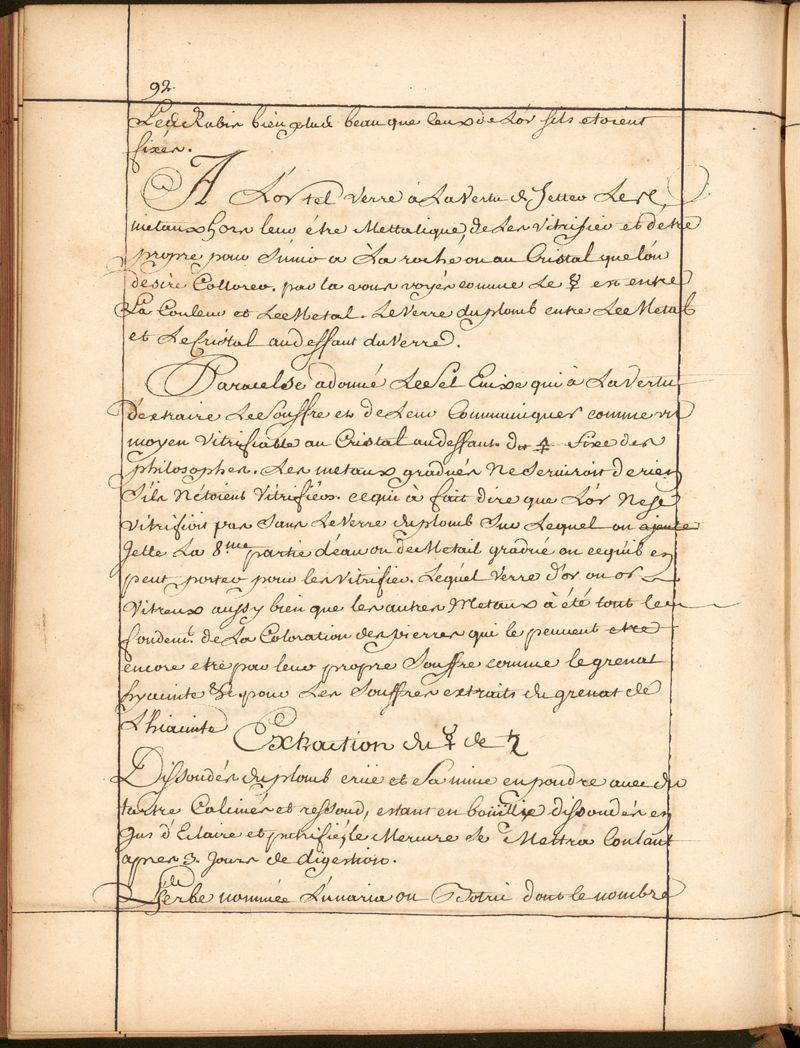 92.
Les Rubis bien plus beau que Ceux de L'ór sils etoient
fixés.
A L'or tel verre à La Vertu de Jetter Les
metaux hors leur étre Mettalique, de Les Vitrifier et d'etre
propre pour S'unir à La roche ou au Cristal que l'ón
desire Collorer. par la vous voyés comme Le ☿ est entre
La Couleur et Le Metal. Le Verre du plomb entre Le Metal
et Le Cristal au deffaut du Verre.
Paracelse a donné Le Sel Enixe qui à La Vertu
D'extraire Le Souffre et de Leur Communiquer comme un
moyen Vitrifiable au Cristal au deffaut du 🜍 fixe des
philosophes. Les metaux gradués Ne Serviroit de rien
S'ils N'étoient Vitrifiés. ce qui à fait dire que L'ór Ne se
vitrifioit pas Sans Le Verre du plomb Sur Lequel on ajoute
Jette La 8.me partie d'eau ou de Metail gradué ou ce qu'il en
peut porter pour les Vitrifier. Lequel Verre d'or ou or
Vitreux aussy bien que les autres Metaux à été tout le
fondem.t de La Coloration des pierres qui le peuvent etre
encore etre par leur propre Souffre comme le grenat
hyacinte &c. pour Les Souffres extraits du grenat de
L'hiacinte
Extraction du ☿ de ♄
Dissoudés du plomb crüe et Sa mine en poudre avec du
tartre Calcinés et ressoud, estant en bouillie dissoudés en
Jus d'Eclaire et putrifié, le Mercure se Mettra Coulant
apres 3. Jours de digestion.
L'herbe nommée Lunaria ou Botrie dont le nombre